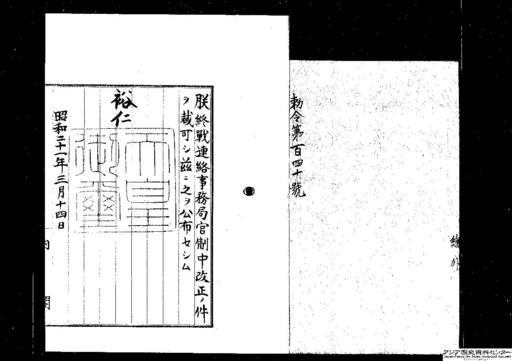 勅令第百四十號
朕終戰連絡事務局官制中改正ノ件
ヲ裁可シ茲ニ之ヲ公布セシム
裕仁
天皇御璽
昭和二十一年三月十四日
内閣
アジア歴史資料センター